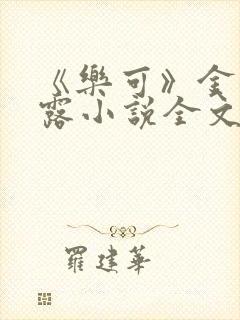 《樂可》金
露小說全文
羅建華